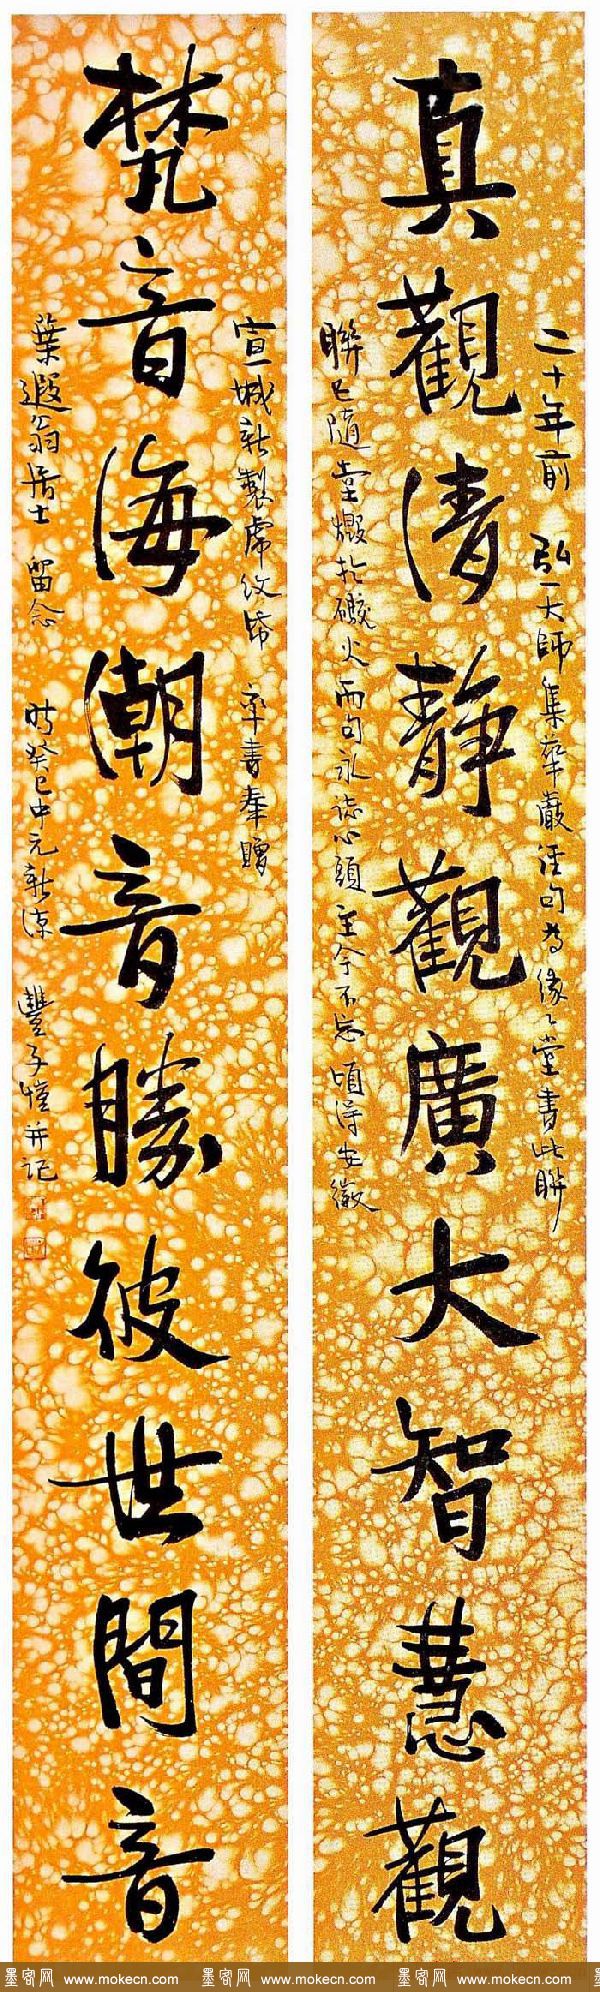 真觀清靜觀廣大智慧觀
二十年前 弘一大師集華嚴經句為緣緣堂書此聯
聯已隨堂燬於礮火而句永誌心頭至今不忘頃得安徽
梵音海潮音勝彼世間音
宣城新製虎紋箋 率書奉贈
葉遐翁居士 留念 時癸巳中元新涼 豐子愷并記
墨客网 www.mokecn.com 墨客网 www.mokecn.com 墨客网 www.mokecn.com